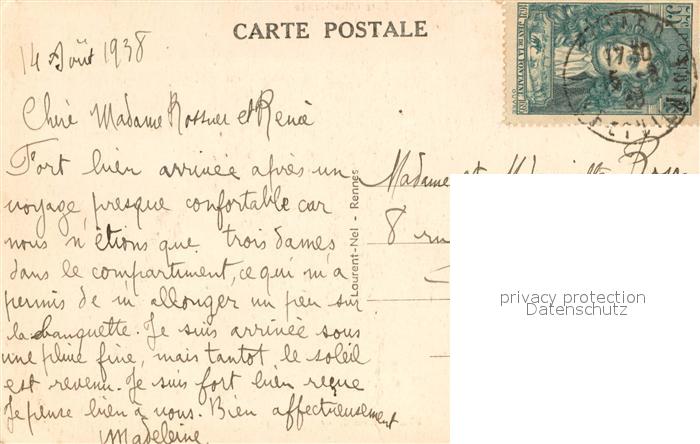 CARTE POSTALE
14 Août 1938
Chère Madame Rossner et Renée
Fort bien arrivée après un
voyage, presque confortable car
nous n'étions que trois dames
dans le compartiment, ce qui m'a
permis de m'allonger un peu sur
la banquette. Je suis arrivée sous
une pluie fine, mais tantot le soleil
est revenu. Je suis fort bien reçue
Je pense bien à vous. Bien affectueusement
Madeleine
Laurent-Nel - Rennes
Madame et
8 rue
privacy protection
Datenschutz